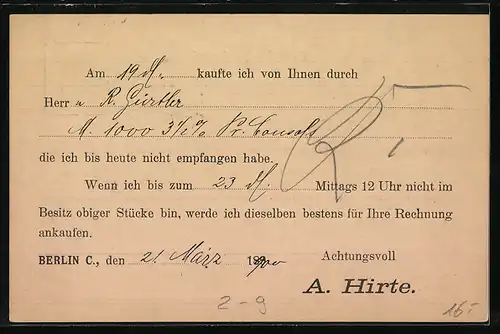 Am 19 d. kaufte ich von Ihnen durch
Herr R. Gürtler
M. 1000 3½% Pr. Consols
die ich bis heute nicht empfangen habe.
Wenn ich bis zum 23 d. Mittags 12 Uhr nicht im
Besitz obiger Stücke bin, werde ich dieselben bestens für Ihre Rechnung
ankaufen.
BERLIN C., den 21. März 1900 Achtungsvoll
A. Hirte.
2-9
16.-